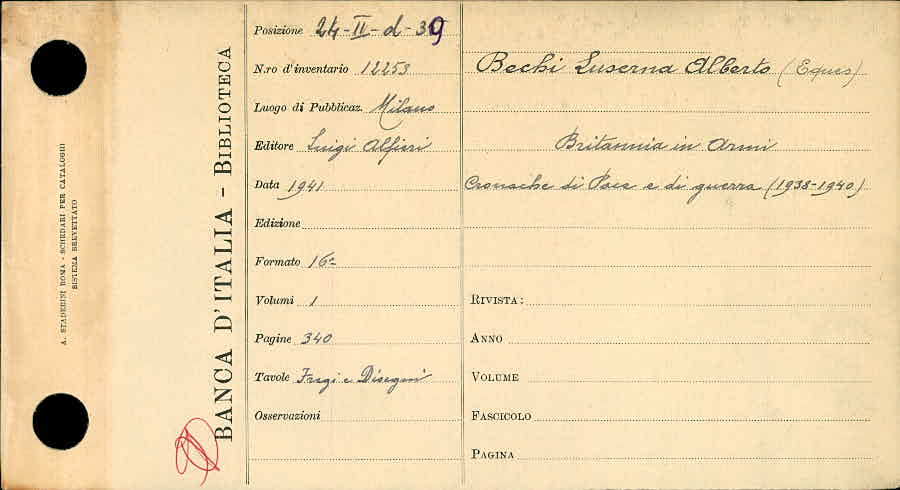 A. STADERINI ROMA - SCHEDARI PER CATALOGHI
SISTEMA BREVETTATO
BANCA D'ITALIA - BIBLIOTECA
Posizione 24-II-d-39
N.ro d'inventario 12253
Luogo di Pubblicaz. Milano
Editore Luigi Alfieri
Data 1941
Edizione
Formato 16º
Volumi 1
Pagine 340
Tavole Fregi e Disegni
Osservazioni
Bechi Luserna Alberto (Eques)
Britannia in Armi
Cronache di Pace e di guerra (1938-1940)
RIVISTA:
ANNO
VOLUME
FASCICOLO
PAGINA